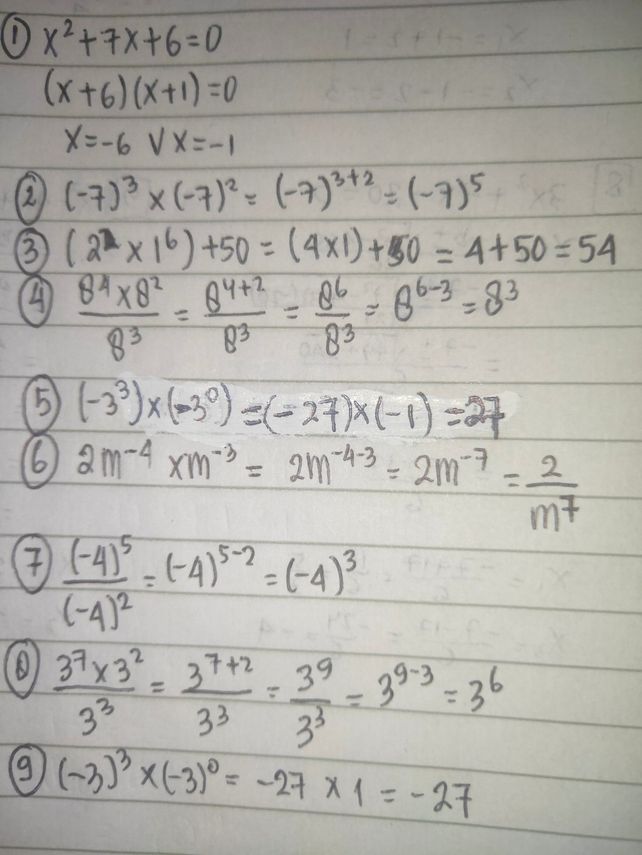 ① x²+7x+6=0
(x+6)(x+1)=0
x=-6 ∨ x=-1
② (-7)³ x (-7)² = (-7)³⁺² = (-7)⁵
③ (2² x 1⁶) + 50 = (4x1) + 50 = 4+50 = 54
④ 8⁴x8²/8³ = 8⁴⁺²/8³ = 8⁶/8³ = 8⁶⁻³ = 8³
⑤ (-3³)x(-3⁰) = (-27)x(-1) = 27
⑥ 2m⁻⁴ xm⁻³ = 2m⁻⁴⁻³ = 2m⁻⁷ = 2/m⁷
⑦ (-4)⁵/(-4)² = (-4)⁵⁻² = (-4)³
⑧ 3⁷x3²/3³ = 3⁷⁺²/3³ = 3⁹/3³ = 3⁹⁻³ = 3⁶
⑨ (-3)³ x (-3)⁰ = -27 x 1 = -27